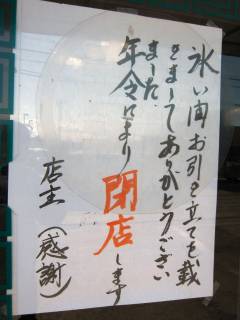 氷い間お引き立てを載
きましてありがとうござい
ました
年令により閉店します
店主(感謝)